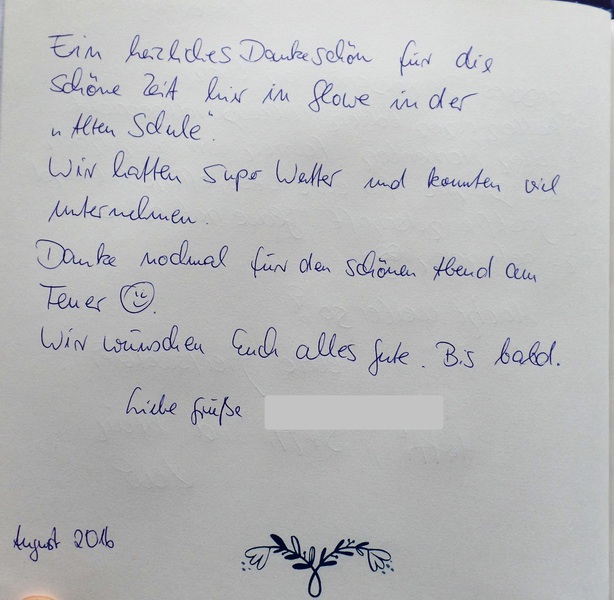 Ein herzliches Dankeschön für die
schöne Zeit hier in Glowe in der
"Alten Schule".
Wir hatten super Wetter und konnten viel
unternehmen.
Danke nochmal für den schönen Abend am
Feuer ☺.
Wir wünschen Euch alles Gute. Bis bald.
Liebe Grüße
August 2016